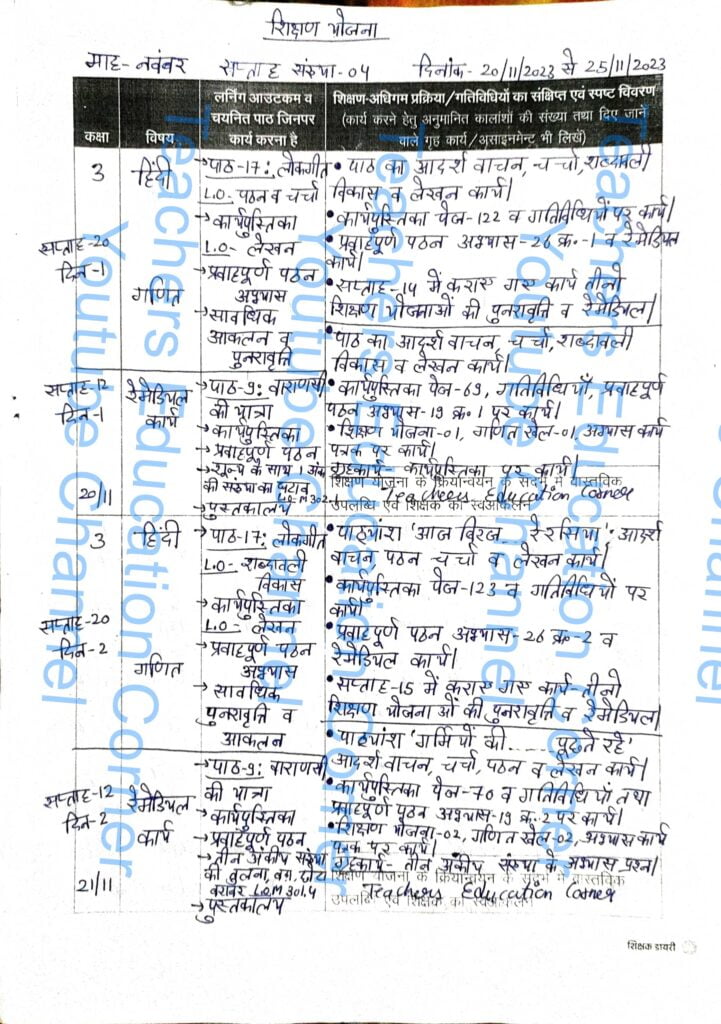 शिक्षण योजना
माह- नवंबर सप्ताह संख्या-04 दिनांक- 20/11/2023 से 25/11/2023
कक्षा
विषय
लर्निंग आउटकम व
चयनित पाठ जिनपर
कार्य करना है
शिक्षण-अधिगम प्रक्रिया/गतिविधियों का संक्षिप्त एवं स्पष्ट विवरण
(कार्य करने हेतु अनुमानित कालांशों की संख्या तथा दिए जाने
वाले गृह कार्य/असाइनमेन्ट भी लिखें)
3
सप्ताह-20
दिन-1
हिंदी
गणित
→पाठ-17: लोकगीत
L.O- पठन व चर्चा
→कार्यपुस्तिका
L.O- लेखन
→प्रवाहपूर्ण पठन
अभ्यास
→सावधिक
आकलन व
पुनरावृत्ति
• पाठ का आदर्श वाचन, चर्चा, शब्दावली
विकास व लेखन कार्य।
• कार्यपुस्तिका पेज-122 व गतिविधियों पर कार्य।
• प्रवाहपूर्ण पठन अभ्यास-26 क्र.-1 व रेमेडियल
कार्य।
• सप्ताह-14 में कराए गए कार्य तीनो
शिक्षण योजनाओं की पुनरावृत्ति व रेमेडियल।
सप्ताह-12
दिन-1
20/11
रेमेडियल
कार्य
→पाठ-9: वाराणसी
की यात्रा
→कार्यपुस्तिका
→प्रवाहपूर्ण पठन
→शून्य के साथ 1 अंक
की संख्या का घटाव
L.O.M 302.1
→पुस्तकालय
पाठ का आदर्श वाचन, चर्चा, शब्दावली
विकास व लेखन कार्य।
• कार्यपुस्तिका पेज-69, गतिविधियाँ, प्रवाहपूर्ण
पठन अभ्यास-19 क्र. 1 पर कार्य।
• शिक्षण योजना-01, गणित खेल-01, अभ्यास कार्य
पत्रक पर कार्य।
गृहकार्य- कार्यपुस्तिका पर कार्य।
शिक्षण योजना के क्रियान्वयन के संदर्भ में वास्तविक
उपलब्धि एवं शिक्षक का स्वआकलन
Teachers Education Corner
3
सप्ताह-20
दिन-2
हिंदी
गणित
→पाठ-17: लोकगीत
L.O- शब्दावली
विकास
→कार्यपुस्तिका
L.O- लेखन
→प्रवाहपूर्ण पठन
अभ्यास
→सावधिक
पुनरावृत्ति व
आकलन
• पाठ्यांश 'आज बिरज... रे रसिया': आदर्श
वाचन, पठन चर्चा व लेखन कार्य।
• कार्यपुस्तिका पेज-123 व गतिविधियों पर
कार्य।
• प्रवाहपूर्ण पठन अभ्यास-26 क्र-2 व
रेमेडियल कार्य।
• सप्ताह-15 में कराए गए कार्य-तीनो
शिक्षण योजनाओं की पुनरावृत्ति व रेमेडियल।
सप्ताह-12
दिन-2
21/11
रेमेडियल
कार्य
→पाठ-9: वाराणसी
की यात्रा
→कार्यपुस्तिका
→प्रवाहपूर्ण पठन
→तीन अंकीय संख्या
की तुलना, बड़ा, छोटा
बराबर L.O.M 301.4
→पुस्तकालय
• पाठ्यांश 'गर्मियों की ...... पूछते रहे'
आदर्श वाचन, चर्चा, पठन व लेखन कार्य।
• कार्यपुस्तिका पेज-70 व गतिविधियाँ तथा
प्रवाहपूर्ण पठन अभ्यास-19 क्र.-2 पर कार्य।
• शिक्षण योजना-02, गणित खेल-02, अभ्यास कार्य
पत्रक पर कार्य।
गृहकार्य- तीन अंकीय संख्या के अभ्यास प्रश्न।
शिक्षण योजना के क्रियान्वयन के संदर्भ में वास्तविक
उपलब्धि एवं शिक्षक का स्वआकलन
Teachers Education Corner
शिक्षक डायरी
Teachers Education Corner
Youtube Channel
Teachers Education Corner
Youtube Channel
Teachers Education Corner
Youtube Channel